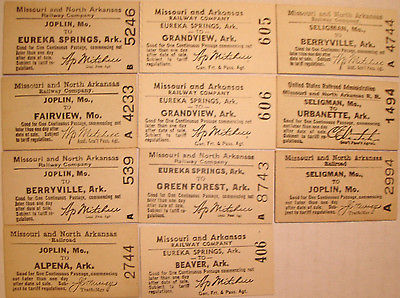 Missouri and North Arkansas
Railway Company
JOPLIN, Mo.,
TO
EUREKA SPRINGS, Ark.
Good for One Continuous Passage, commencing not
later than one day
after date of sale.
Subject to tariff
regulations.
B 5246
Missouri and North Arkansas
Railway Company
JOPLIN, Mo.,
TO
FAIRVIEW, Mo.
Good for One Continuous Passage, commencing not
later than one day after
date of sale. Subject
to tariff regulations.
A 4233
Missouri and North Arkansas
Railway Company
JOPLIN, Mo.,
TO
BERRYVILLE, Ark.
Good for One Continuous Passage, commencing
not later than one day
after date of sale.
Subject to tariff
regulations.
A 539
Missouri and North Arkansas
Railroad
JOPLIN, Mo.,
TO
ALPENA, Ark.
Good for One Continuous Passage, commencing
not later than one day
after date of sale.
Subject to tariff
regulations.
2744
Missouri and Arkansas
RAILWAY COMPANY
EUREKA SPRINGS, Ark.
TO
GRANDVIEW, Ark.
Good for One Continuous Passage, commencing
not later than one day
after date of sale.
Subject to tariff
regulations.
Gen. Frt. & Pass. Agt.
605
Missouri and Arkansas
RAILWAY COMPANY
EUREKA SPRINGS, Ark.
TO
GRANDVIEW, Ark.
Good for One Continuous Passage, commencing
not later than one day
after date of sale.
Subject to tariff
regulations.
Gen. Frt. & Pass. Agt.
606
Missouri and North Arkansas
Railway Company
EUREKA SPRINGS, Ark.
TO
GREEN FOREST, Ark.
Good for One Continuous Passage, commencing
not later than one day
after date of sale.
Subject to tariff
regulations.
A 8743
Missouri and Arkansas
RAILWAY COMPANY
EUREKA SPRINGS, Ark.
TO
BEAVER, Ark.
Good for One Continuous Passage, commencing
not later than one day
after date of sale.
Subject to tariff
regulations.
Gen. Frt. & Pass. Agt.
406
Missouri and North Arkansas
Railway Company
SELIGMAN, Mo.,
TO
BERRYVILLE, Ark.
Good for One Continuous Passage, commencing not
later than one day after
date of sale. Subject
to tariff regulations.
A 4744
United States Railroad Administration
Missouri and North Arkansas R. R.
SELIGMAN, Mo.,
TO
URBANETTE, Ark.
Good for One Continuous Passage, commencing
not later than one day
after date of sale.
Subject to tariff
regulations.
A 1494
Missouri and North Arkansas
Railroad
SELIGMAN, Mo.,
TO
JOPLIN, Mo.
Good for One Continuous Passage, commencing
not later than one day
after date of sale.
Subject to tariff
regulations.
A 2994